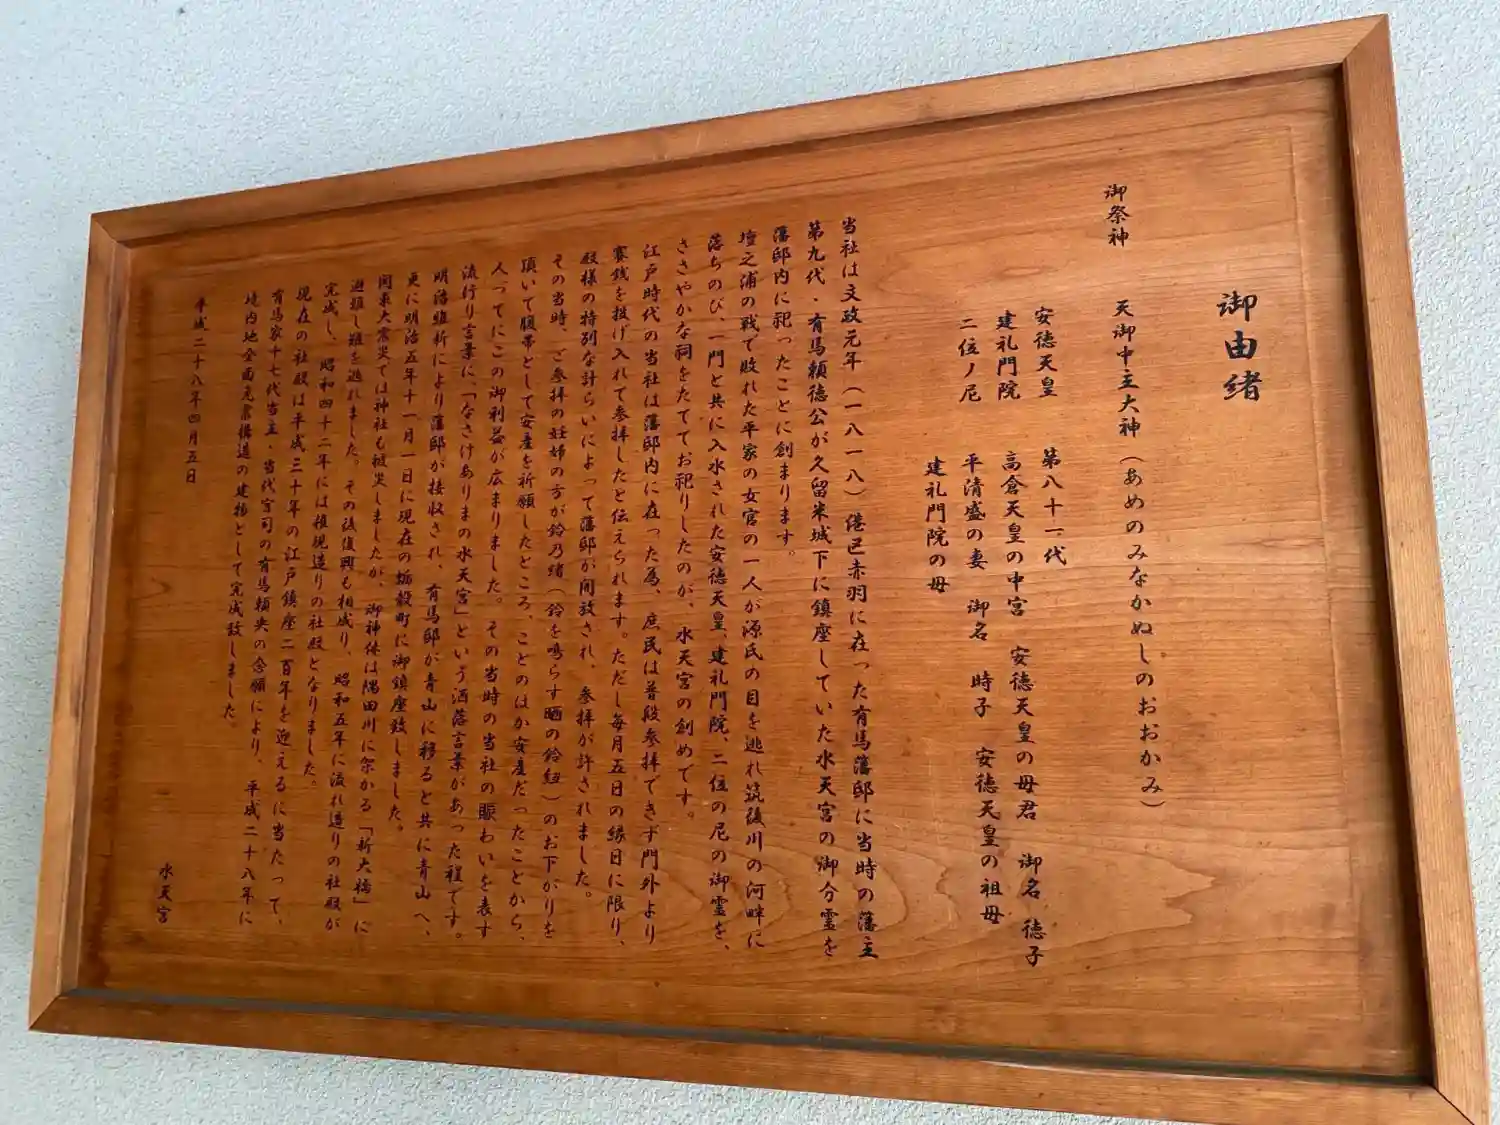 御由緒
御祭神 天御中主大神（あめのみなかぬしのおおかみ）
安徳天皇 第八十一代
建礼門院 高倉天皇の中宮 安徳天皇の母君 御名 徳子
二位ノ尼 平清盛の妻 御名 時子 安徳天皇の祖母
建礼門院の母
当社は文政元年（一八一八）港区赤羽に在った有馬藩邸に当時の藩主
第九代・有馬頼徳公が久留米城下に鎮座していた水天宮の御分霊を
藩邸内に祀ったことに創まります。
壇之浦の戦で敗れた平家の女官の一人が源氏の目を逃れ筑後川の河畔に
落ちのび、一門と共に入水された安徳天皇、建礼門院、二位の尼の御霊を、
ささやかな祠をたててお祀りしたのが、水天宮の創めです。
江戸時代の当社は藩邸内に在った為、庶民は普段参拝できず門外より
賽銭を投げ入れて参拝したと伝えられます。ただし毎月五日の縁日に限り、
殿様の特別な計らいによって藩邸が開放され、参拝が許されました。
その当時、ご参拝の妊婦の方が鈴乃緒（鈴を鳴らす晒の鈴紐）のお下がりを
頂いて腹帯として安産を祈願したところ、ことのほか安産だったことから、
人づてにこの御利益が広まりました。その当時の当社の賑わいを表す
流行り言葉に、「なさけありまの水天宮」という洒落言葉があった程です。
明治維新により藩邸が接収され、有馬邸が青山に移ると共に青山へ、
更に明治五年十一月一日に現在の蛎殻町に御鎮座致しました。
関東大震災では神社も被災しましたが、御神体は隅田川に架かる「新大橋」に
避難し難を逃れました。その後復興も相成り、昭和五年に流れ造りの社殿が
完成し、昭和四十二年には権現造りの社殿となりました。
現在の社殿は平成三十年の江戸鎮座二百年を迎えるに当たって、
有馬家十七代当主・当代宮司の有馬頼央の念願により、平成二十八年に
境内地全面免震構造の建物として完成致しました。
平成二十八年四月五日
水天宮